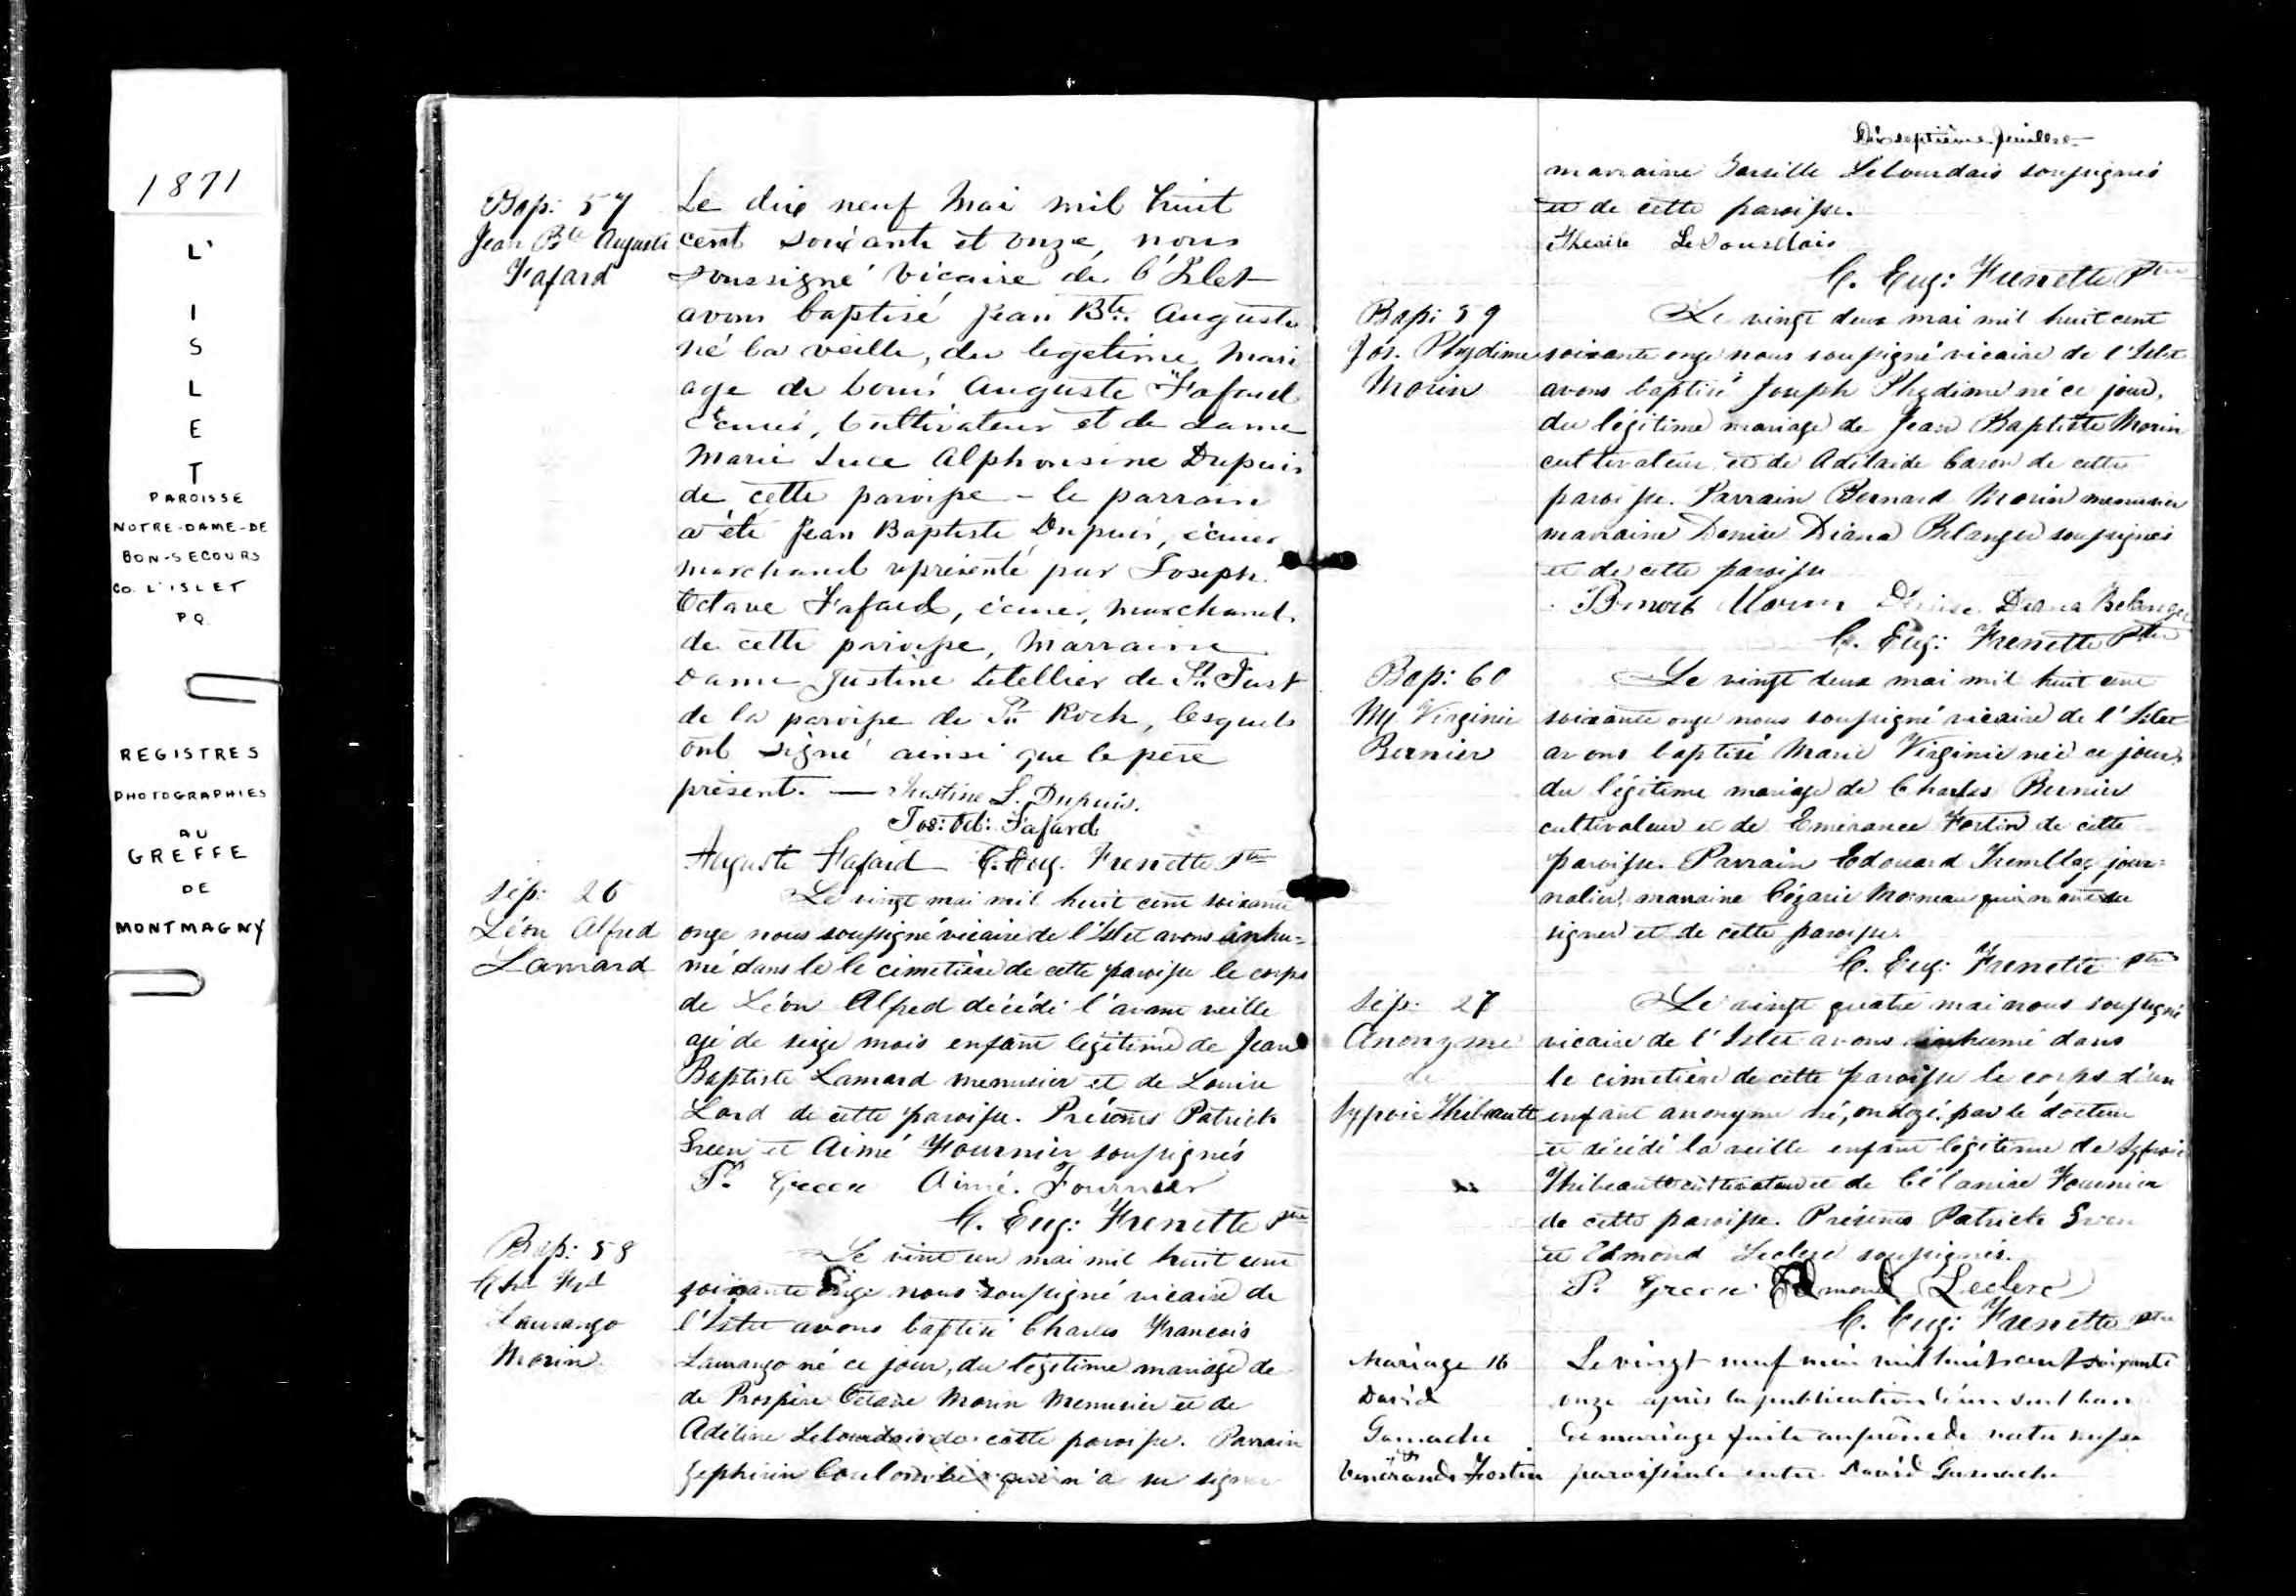 1871
L'
I
S
L
E
T
PAROISSE
NOTRE-DAME-DE
BON-SECOURS
CO. L'ISLET
P.Q.
REGISTRES
PHOTOGRAPHIES
AU
GREFFE
DE
MONTMAGNY
Bap: 57
Jean Bte Auguste
Fafard
Le dix neuf Mai mil huit
cent soixante et onze, nous
soussigné Vicaire de l'Islet
avons baptisé Jean Bte Auguste
né la veille, du legetime Mari
age de Louis Auguste Fafard
Ecuier, Cultivateur et de dame
Marie Luce Alphonsine Dupuis
de cette paroisse - le parrain
a été Jean Baptiste Dupuis, écuier
marchand représenté par Joseph
Octave Fafard, écuier, marchand
de cette paroisse, Marraine
Dame Justine Letellier de St. Just
de la paroisse de St. Roch, lesquels
ont signé ainsi que le père
présent. — Justine L. Dupuis.
Jos: Oct: Fafard
Auguste Fafard C. Eug. Frenette Ptre
Sép: 26
Léon Alfred
Lamard
Le vingt mai mil huit cent soixante
onze nous soussigné vicaire de l'Islet avons inhu=
mé dans le le cimetière de cette paroisse le corps
de Léon Alfred décédé l'avant veille
agé de seize mois enfant légitime de Jean
Baptiste Lamard menuisier et de Louise
Lord de cette paroisse. Présents Patrick
Green et Aimé Fournier soussignés
P. Green Aimé Fournier
C. Eug: Frenette Ptre
Bap: 58
Chs Frs
Laurango
Morin
Le vint un mai mil huit cent
soixante onze nous soussigné vicaire de
l'Islet avons baptisé Charles François
Laurango né ce jour, du légitime mariage de
de Prospère Octave Morin Menuisier et de
Adéline Lebourdais de cette paroisse. Parrain
Zephirin Coulombe qui n'a su signer
Dix septième feuillet
marraine Lebourdais soussignés
et de cette paroisse.
LeBourdais
C. Eug: Frenette Ptre
Bap: 59
Jos. Phydime
Morin
Le vingt deux mai mil huit cent
soixante onze nous soussigné vicaire de l'Islet
avons baptisé Joseph Phydime né ce jour,
du légitime mariage de Jean Baptiste Morin
cultivateur et de Adélaide Caron de cette
paroisse. Parrain Bernard Morin menuisier
marraine Denise Diana Belanger soussignés
et de cette paroisse
Morin Denise Diana Belanger
C. Eug: Frenette Ptre
Bap: 60
My. Virginie
Bernier
Le vingt deux mai mil huit cent
soixante onze nous soussigné vicaire de l'Islet
avons baptisé Marie Virginie née ce jour,
du légitime mariage de Charles Bernier
cultivateur et de Emérance Fortin de cette
paroisse. Parrain Edouard Tremblay jour=
nalier, marraine Cézarie Morneau qui n'ont su
signer et de cette paroisse.
C. Eug: Frenette Ptre
Sép: 27
Anonyme
de
Thibeault
Le vingt quatre mai nous soussigné
vicaire de l'Islet avons inhumé dans
le cimetière de cette paroisse le corps d'un
enfant anonyme né, ondoyé par le docteur
et décédé la veille enfant légitime de
Thibeault cultivateur et de Célanire Fournier
de cette paroisse. Présents Patrick Green
et Edmond Leclerc soussignés.
P. Green Edmond Leclerc
C. Eug: Frenette Ptre
Mariage 16
David
Gamache
&
Vénérande Fortin
Le vingt neuf mai mil huit cent soixante
onze après la publication d'un seul ban
de mariage faite au prône de notre messe
paroissiale entre David Gamache